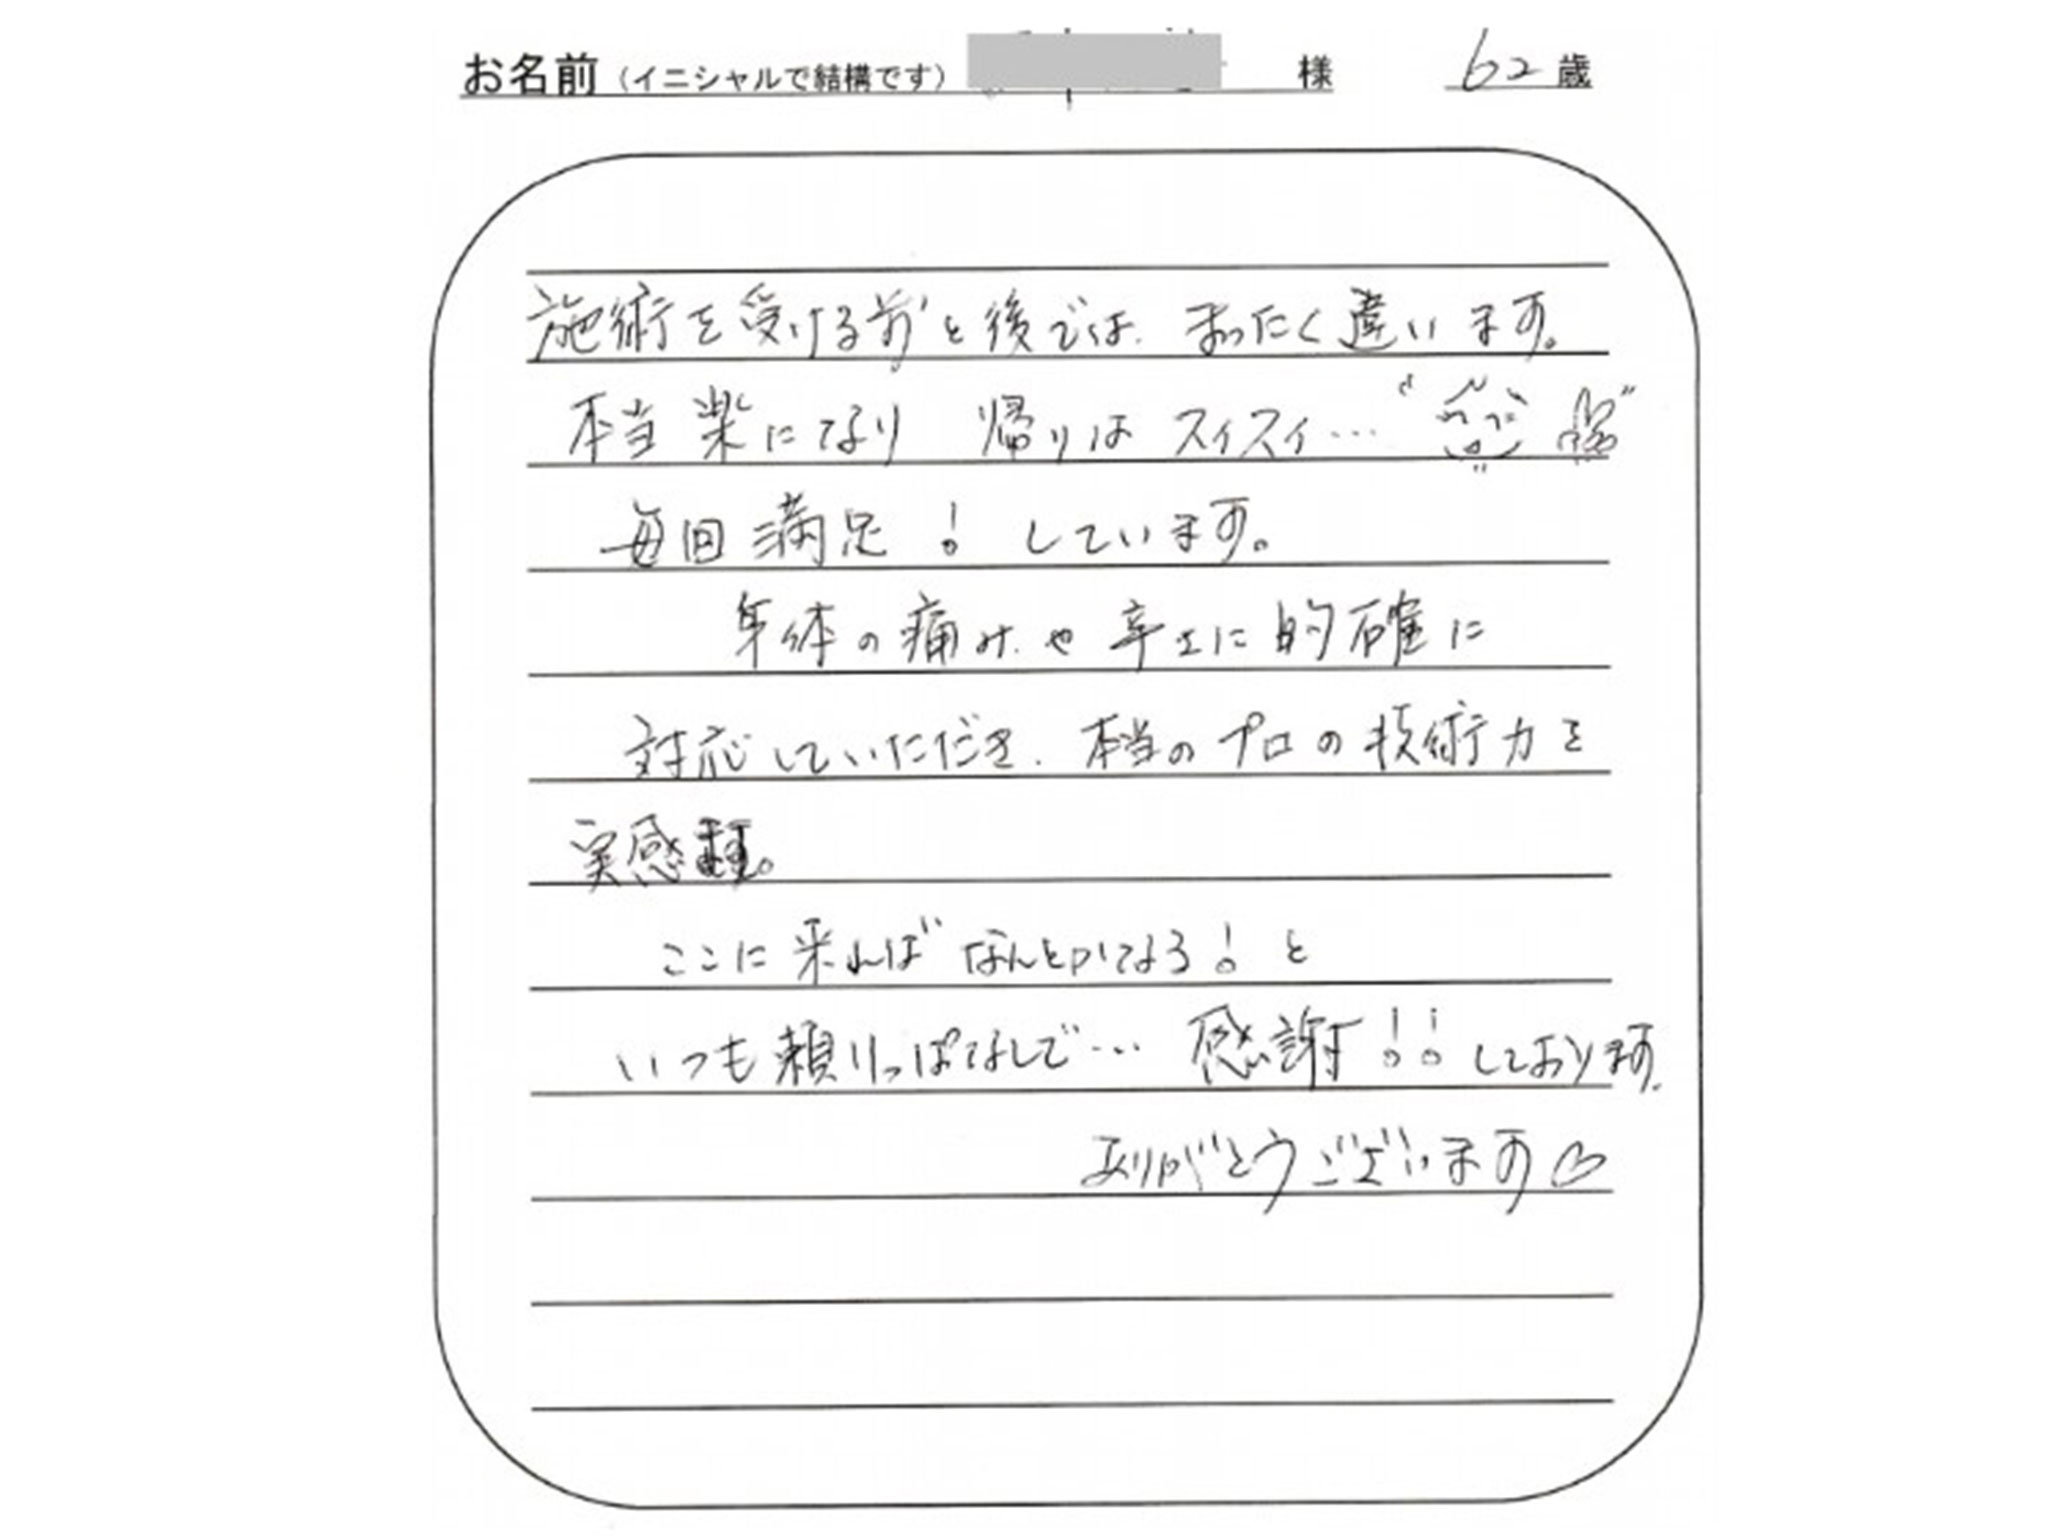 お名前（イニシャルで結構です） 様 62歳
施術を受ける前と後では、まったく違います。
本当楽になり 帰りは スイスイ…
毎回満足！しています。
身体の痛みや辛さに的確に
対応していただき、本当のプロの技術力を
実感。
ここに来ればなんとかなる！と
いつも頼りっぱなしで… 感謝！！しております。
ありがとうございます♡